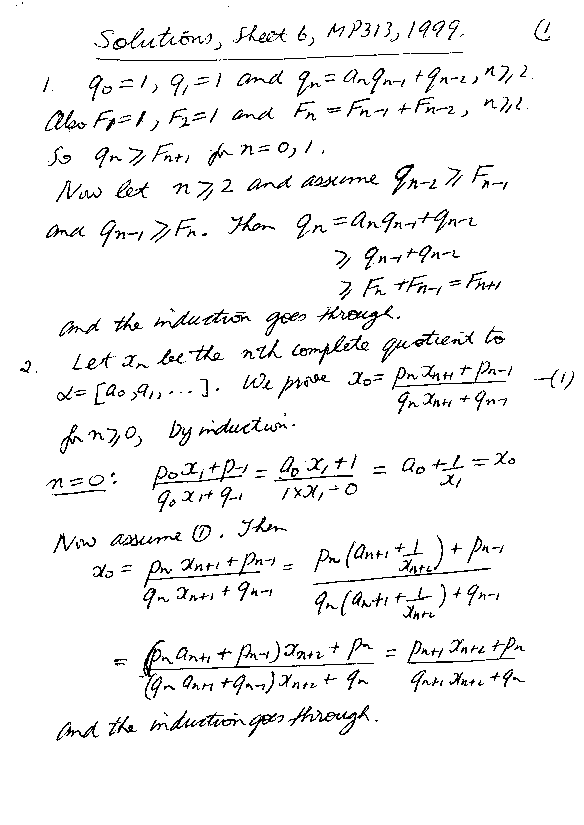 Solutions, Sheet 6, MP313, 1999. (1
1. q₀ = 1, q₁ = 1 and qₙ = aₙqₙ₋₁ + qₙ₋₂, n ≥ 2.
Also F₁ = 1, F₂ = 1 and Fₙ = Fₙ₋₁ + Fₙ₋₂, n ≥ 2.
So qₙ ≥ Fₙ₊₁ for n = 0, 1.
Now let n ≥ 2 and assume qₙ₋₂ ≥ Fₙ₋₁
and qₙ₋₁ ≥ Fₙ. Then qₙ = aₙqₙ₋₁ + qₙ₋₂
≥ qₙ₋₁ + qₙ₋₂
≥ Fₙ + Fₙ₋₁ = Fₙ₊₁
and the induction goes through.
2. Let xₙ be the nth complete quotient to
α = [a₀, a₁, ...]. We prove x₀ = (pₙxₙ₊₁ + pₙ₋₁)/(qₙxₙ₊₁ + qₙ₋₁) —(1)
for n ≥ 0, by induction.
n = 0: (p₀x₁ + p₋₁)/(q₀x₁ + q₋₁) = (a₀x₁ + 1)/(1×x₁ + 0) = a₀ + 1/x₁ = x₀
Now assume ①. Then
x₀ = (pₙxₙ₊₁ + pₙ₋₁)/(qₙxₙ₊₁ + qₙ₋₁) = (pₙ(aₙ₊₁ + 1/xₙ₊₂) + pₙ₋₁)/(qₙ(aₙ₊₁ + 1/xₙ₊₂) + qₙ₋₁)
= ((pₙaₙ₊₁ + pₙ₋₁)xₙ₊₂ + pₙ)/((qₙaₙ₊₁ + qₙ₋₁)xₙ₊₂ + qₙ) = (pₙ₊₁xₙ₊₂ + pₙ)/(qₙ₊₁xₙ₊₂ + qₙ)
and the induction goes through.